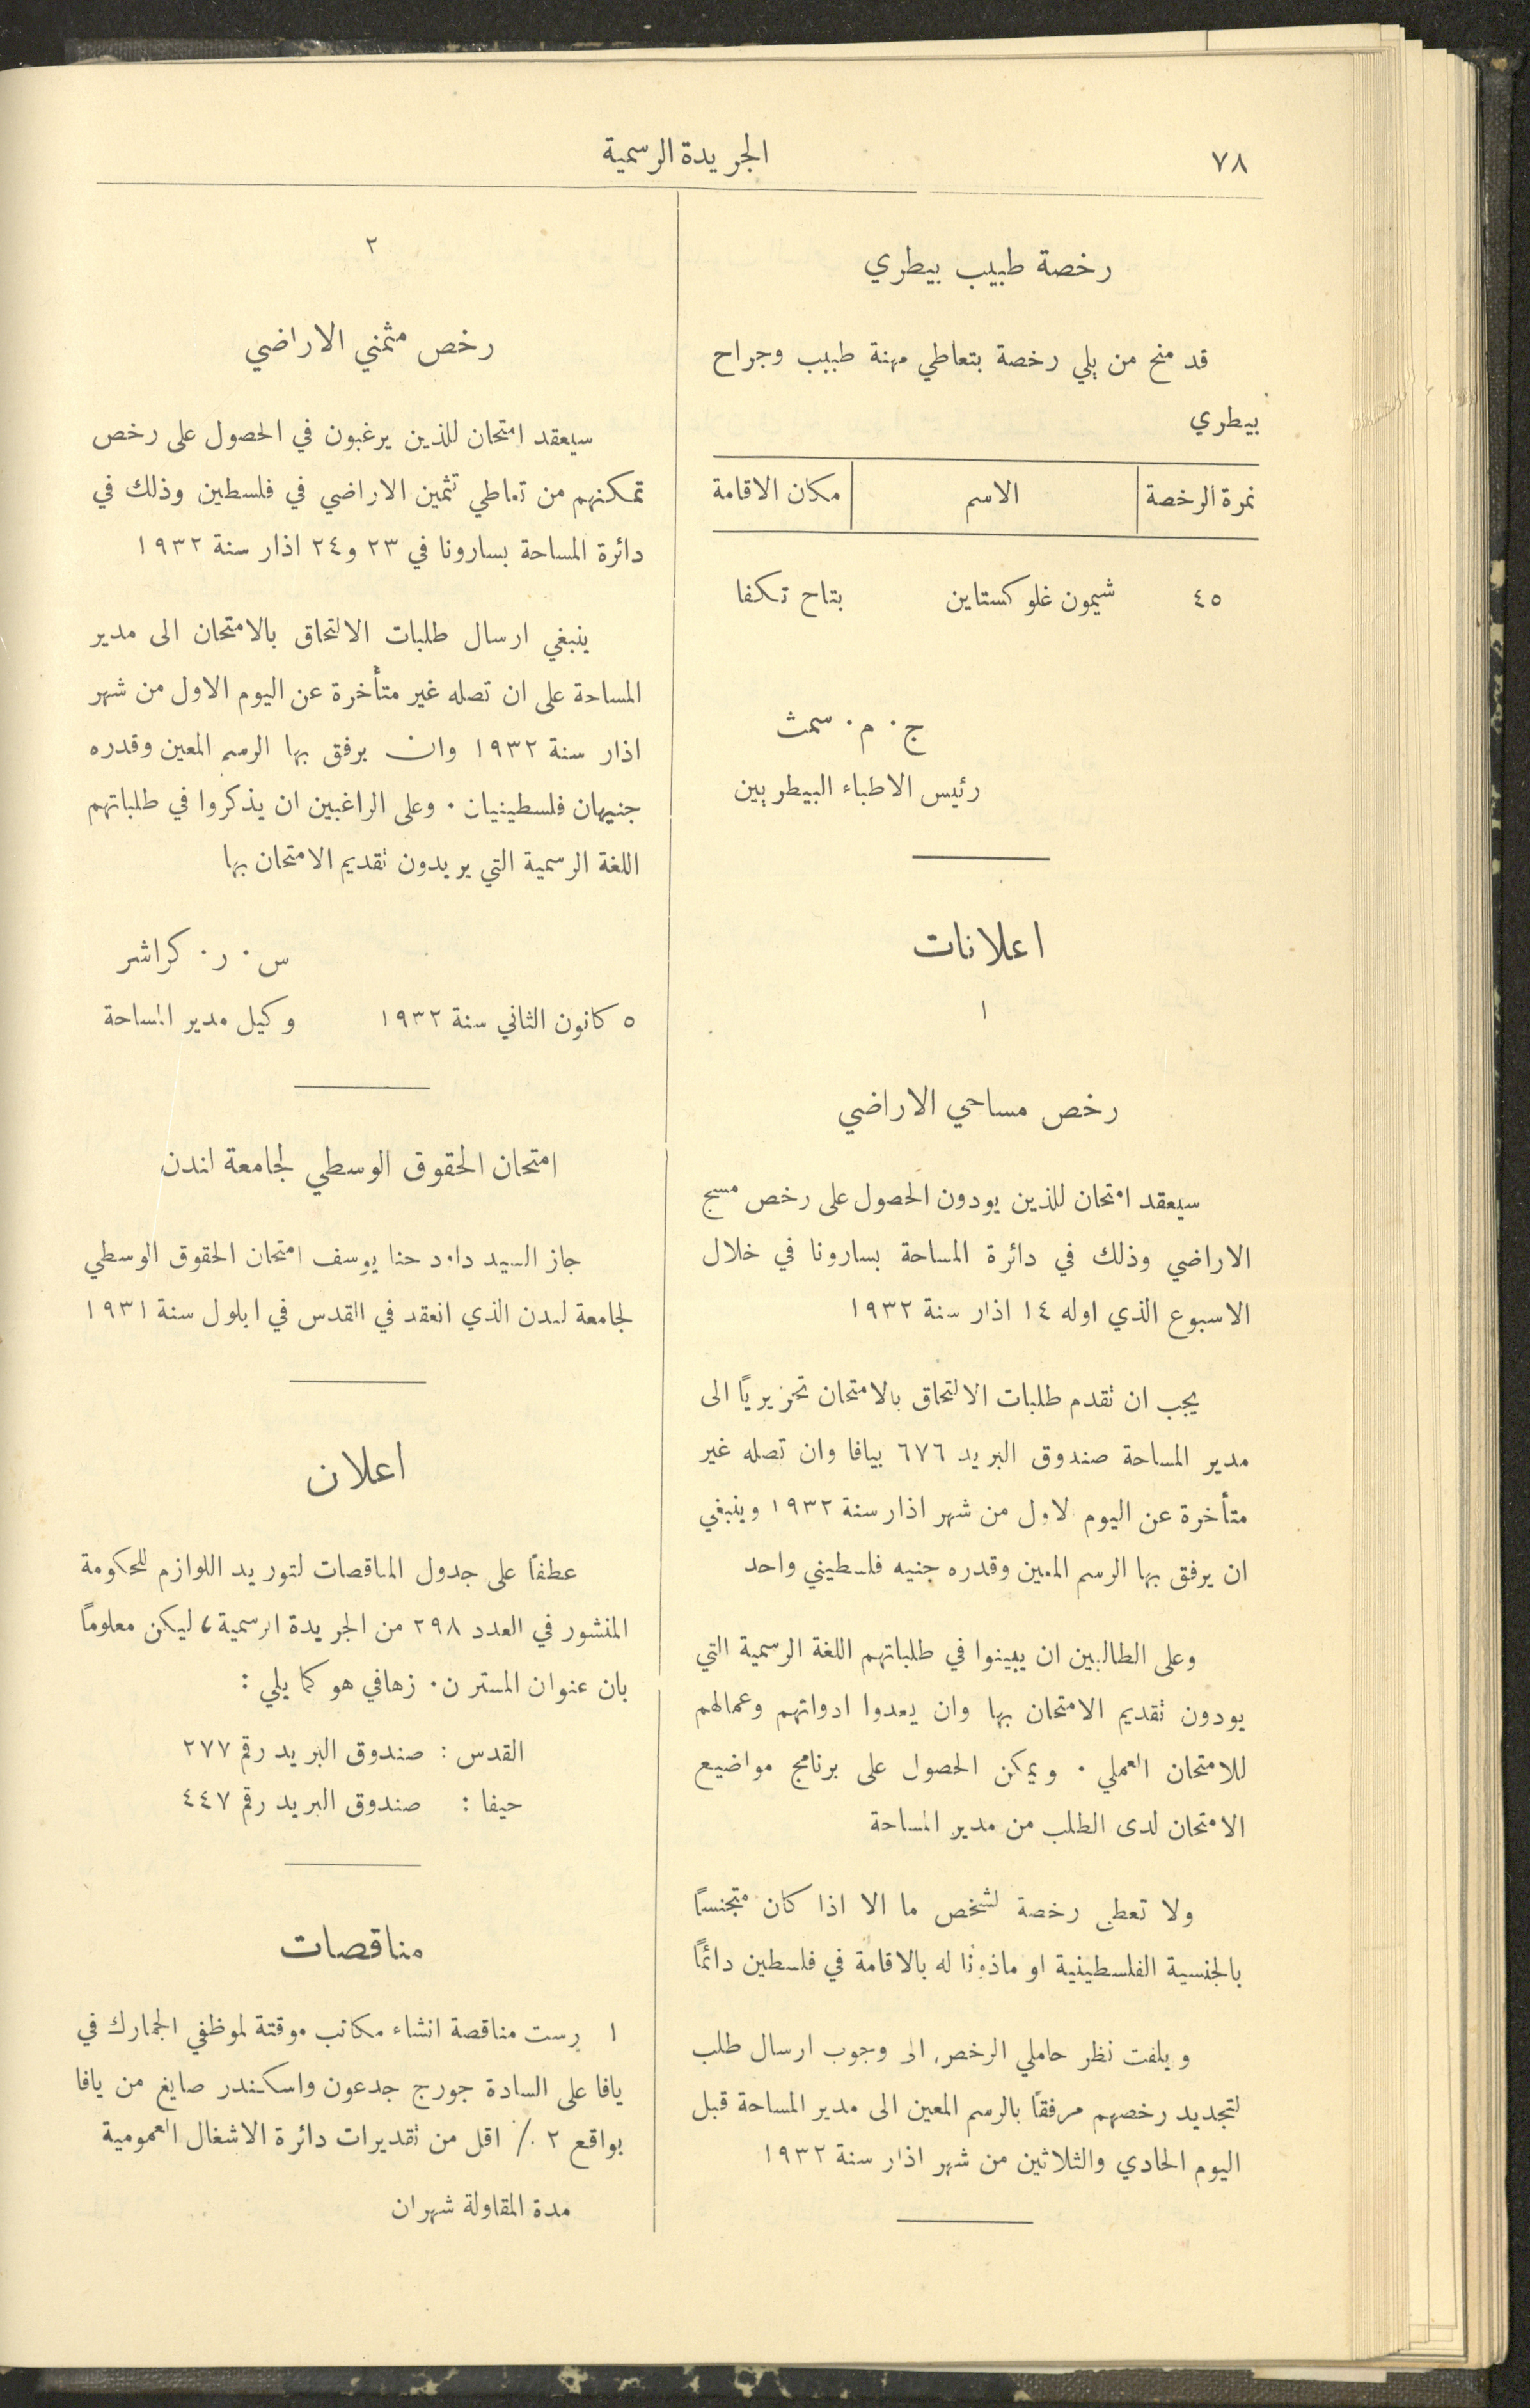 ٧٨
الجريدة الرسمية
رخصة طبيب بيطري
قد منح من يلي رخصة بتعاطي مهنة طبيب وجراح
بيطري
نمرة الرخصة الاسم مكان الاقامة
٤٥ شيمون غلوكستاين بتاح تكفا
ج. م. سمث
رئيس الاطباء البيطريين
اعلانات
١
رخص مساحي الاراضي
سيعقد امتحان للذين يودون الحصول على رخص مسح
الاراضي وذلك في دائرة المساحة بسارونا في خلال
الاسبوع الذي اوله ١٤ اذار سنة ١٩٣٢
يجب ان تقدم طلبات الالتحاق بالامتحان تحريريًا الى
مدير المساحة صندوق البريد ٦٧٦ بيافا وان تصله غير
متأخرة عن اليوم الاول من شهر اذار سنة ١٩٣٢ وينبغي
ان يرفق بها الرسم المعين وقدره جنيه فلسطيني واحد
وعلى الطالبين ان يبينوا في طلباتهم اللغة الرسمية التي
يودون تقديم الامتحان بها وان يعدوا ادواتهم وعمالهم
للامتحان العملي . ويمكن الحصول على برنامج مواضيع
الامتحان لدى الطلب من مدير المساحة
ولا تعطى رخصة لشخص ما الا اذا كان متجنسًا
بالجنسية الفلسطينية او ماذونًا له بالاقامة في فلسطين دائمًا
ويلفت نظر حاملي الرخص الى وجوب ارسال طلب
لتجديد رخصهم مرفقًا بالرسم المعين الى مدير المساحة قبل
اليوم الحادي والثلاثين من شهر اذار سنة ١٩٣٢
٢
رخص مثمني الاراضي
سيعقد امتحان للذين يرغبون في الحصول على رخص
تمكنهم من تعاطي تثمين الاراضي في فلسطين وذلك في
دائرة المساحة بسارونا في ٢٣ و٢٤ اذار سنة ١٩٣٢
ينبغي ارسال طلبات الالتحاق بالامتحان الى مدير
المساحة على ان تصله غير متأخرة عن اليوم الاول من شهر
اذار سنة ١٩٣٢ وان يرفق بها الرسم المعين وقدره
جنيهان فلسطينيان . وعلى الراغبين ان يذكروا في طلباتهم
اللغة الرسمية التي يريدون تقديم الامتحان بها
س. ر. كراشر
٥ كانون الثاني سنة ١٩٣٢ وكيل مدير المساحة
امتحان الحقوق الوسطي لجامعة لندن
جاز السيد داود حنا يوسف امتحان الحقوق الوسطي
لجامعة لندن الذي انعقد في القدس في ايلول سنة ١٩٣١
اعلان
عطفًا على جدول المناقصات لتوريد اللوازم للحكومة
المنشور في العدد ٢٩٨ من الجريدة الرسمية، ليكن معلومًا
بان عنوان المستر ن. زهافي هو كما يلي :
القدس : صندوق البريد رقم ٢٧٧
حيفا : صندوق البريد رقم ٤٤٧
مناقصات
١ رست مناقصة انشاء مكاتب موقتة لموظفي الجمارك في
يافا على السادة جورج جدعون واسكندر صايغ من يافا
بواقع ٢ ٪ اقل من تقديرات دائرة الاشغال العمومية
مدة المقاولة شهران